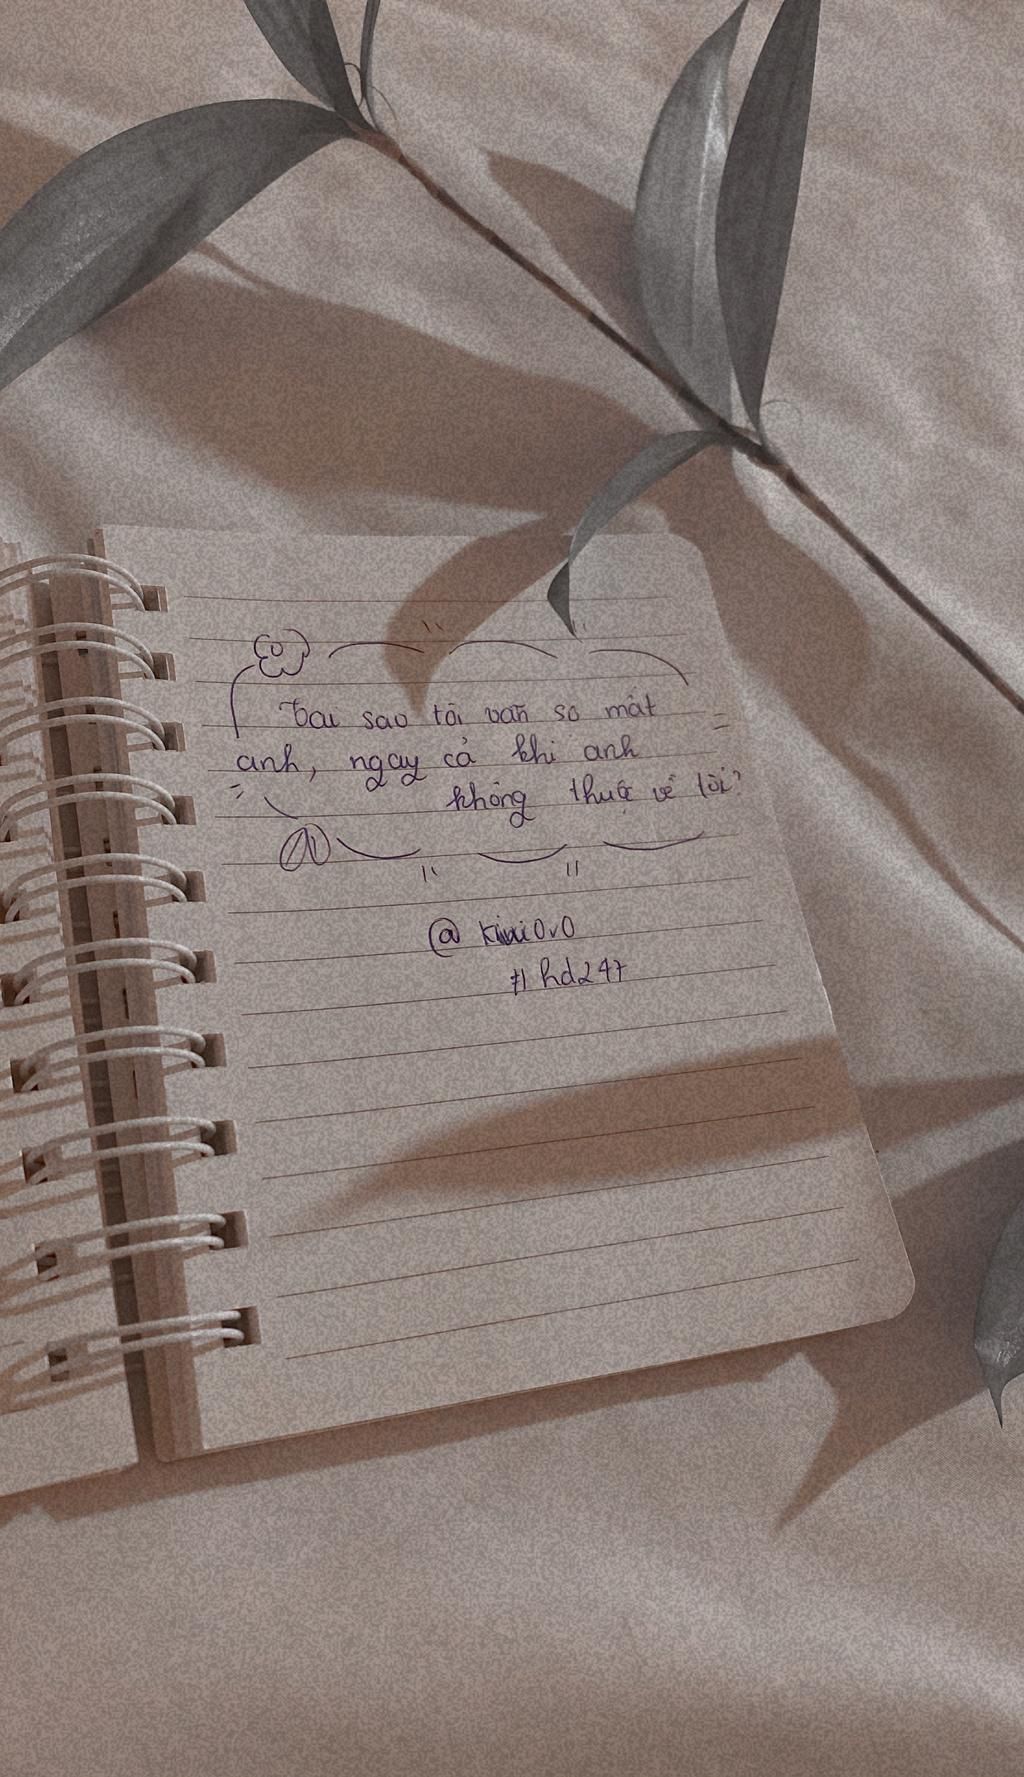 Tại sao tôi vẫn sợ mất
anh, ngay cả khi anh
không thuộc về tôi?
@
#hd247